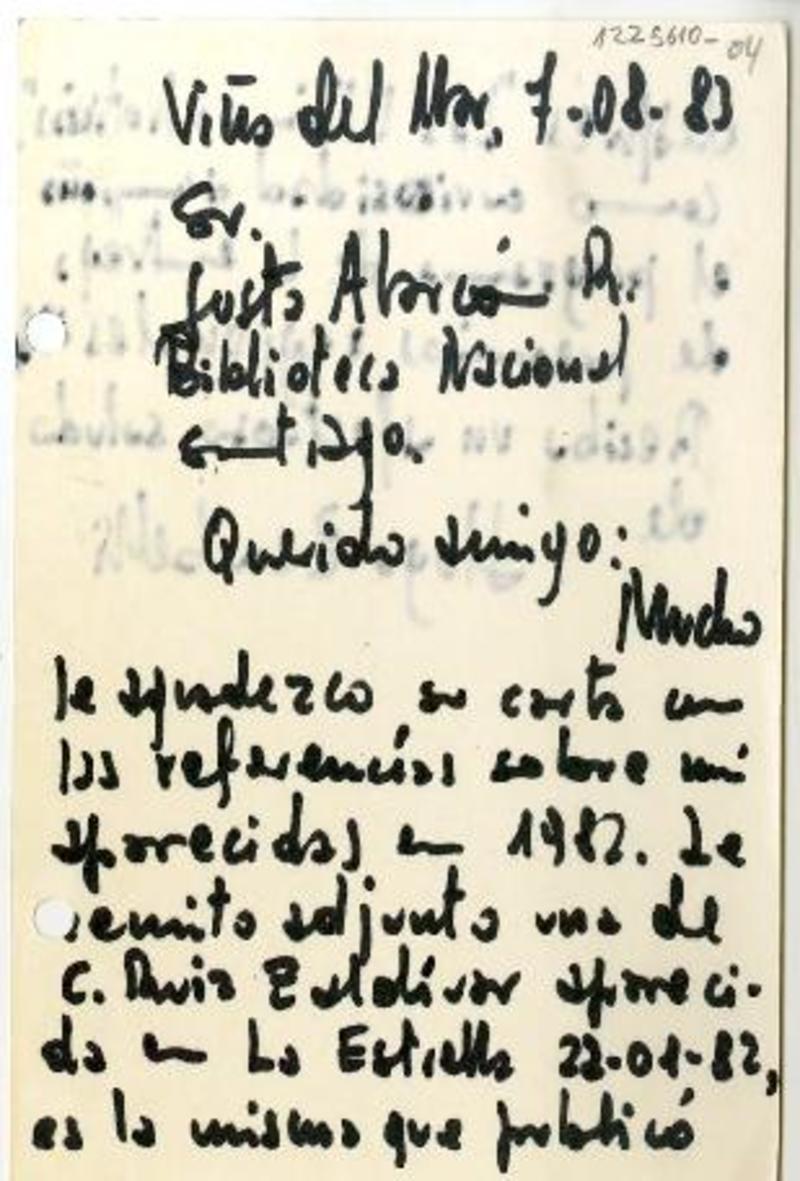 1225610-04
Viña del Mar, 7-08-83
Sr.
Justo Alarcón R.
Biblioteca Nacional
Santiago.
Querido amigo:
Mucho
le agradezco su carta con
las referencias sobre mí
aparecidas en 1982. Le
remito adjunto una de
C. Ruiz Zaldívar apareci-
da en La Estrella 22-01-82,
es la misma que publicó